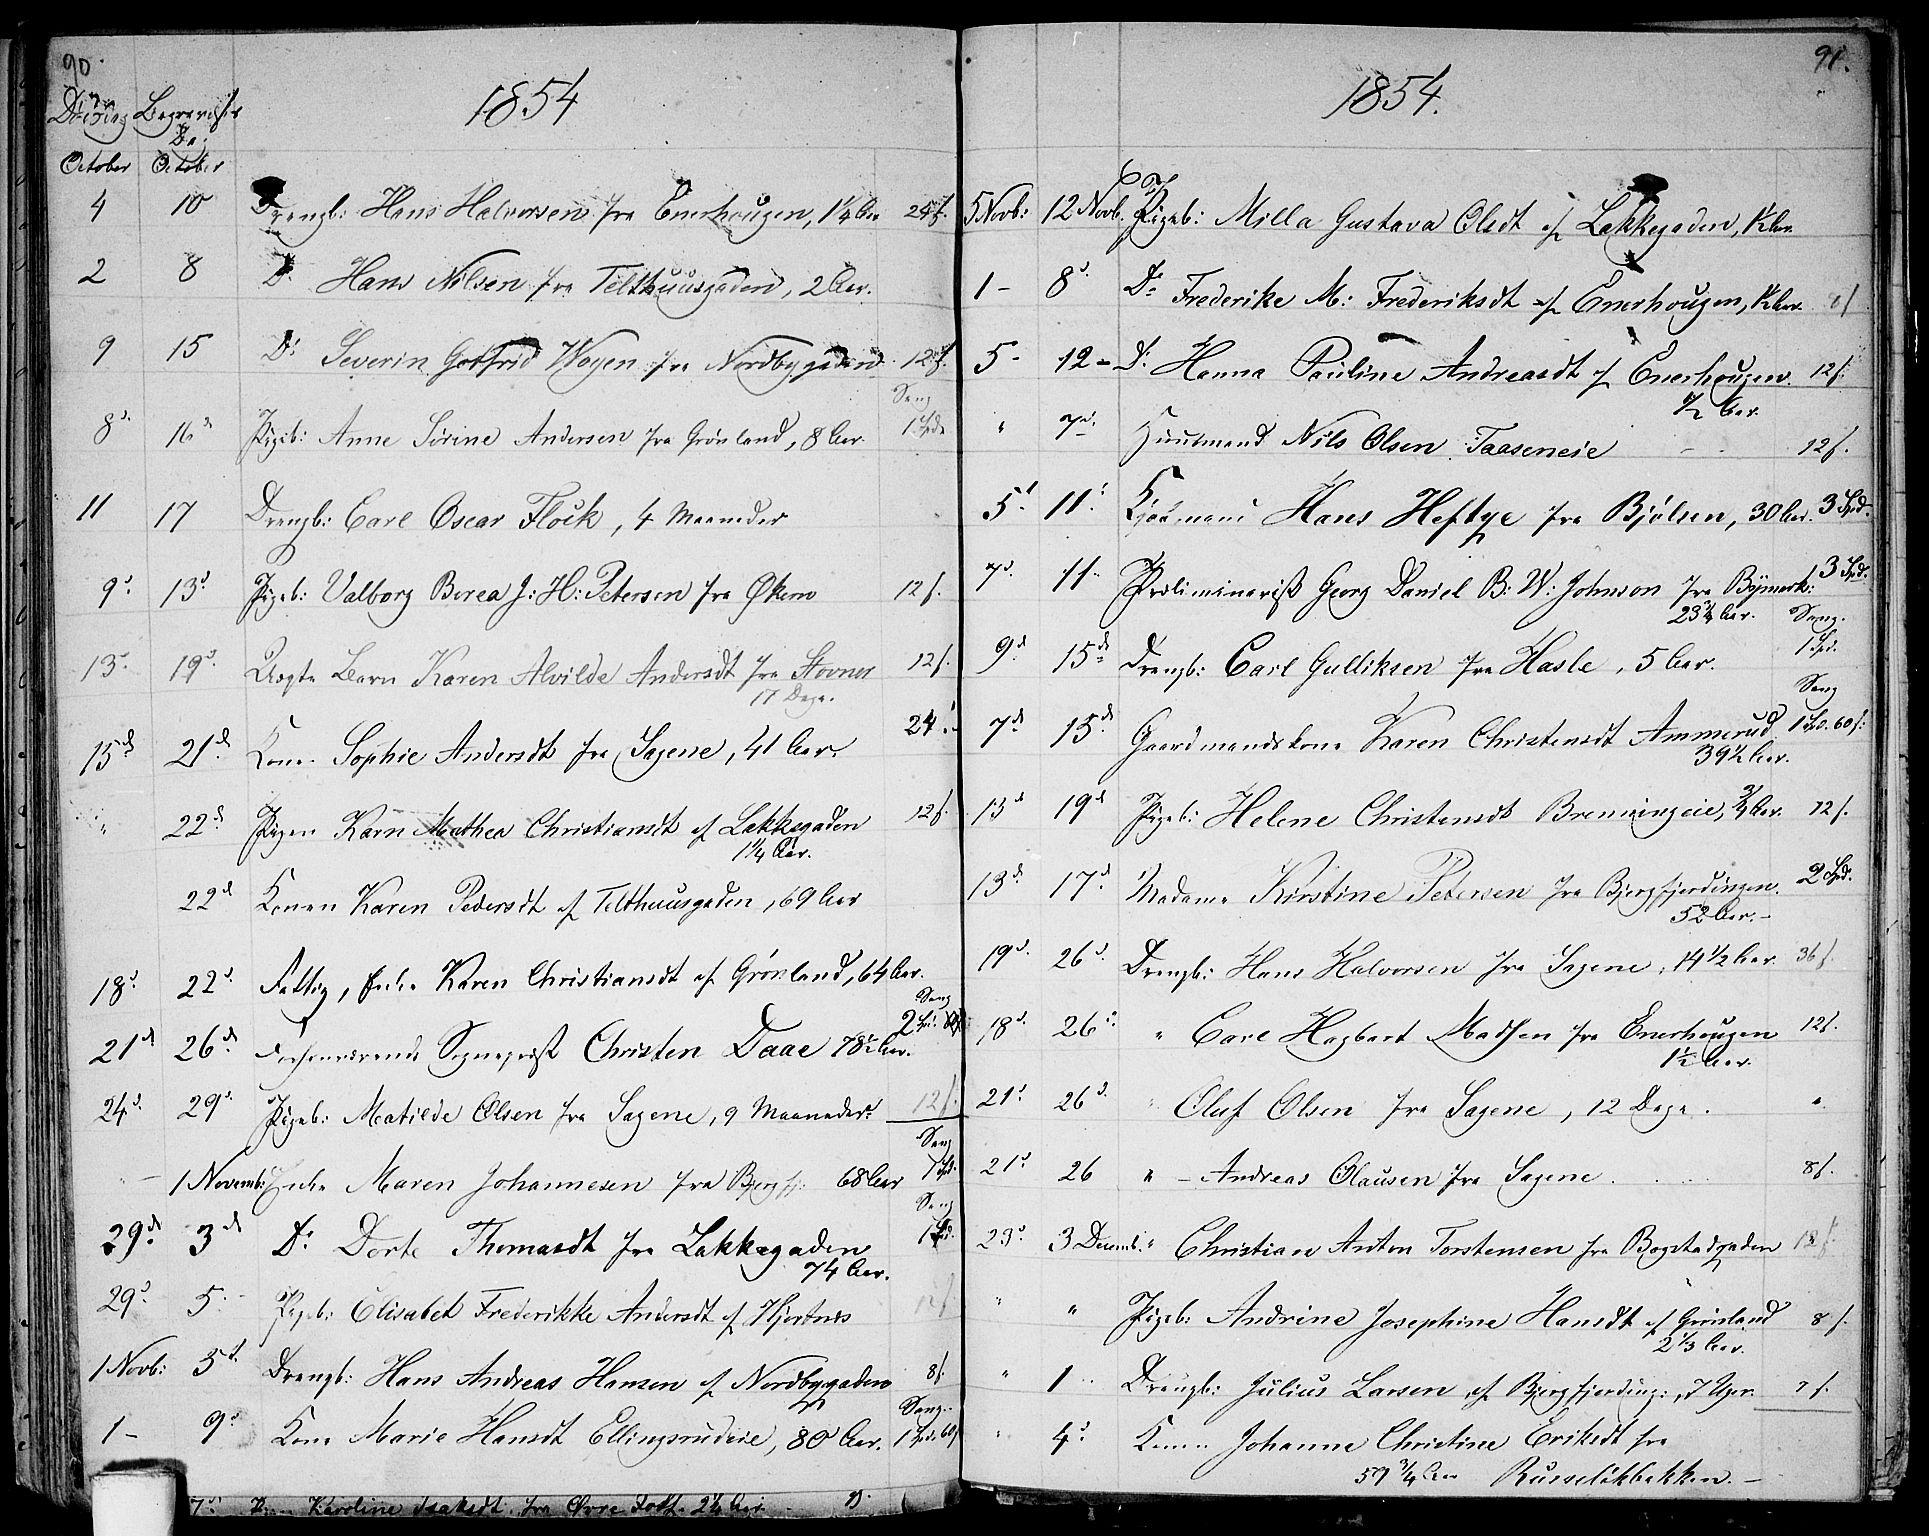 90.
1854
Dødsdag Begravelses
Dag
October October
4 10 Drengb: Hans Halvorsen fra Enerhougen, 1 1/4 Aar 24 s.
2 8 Do Hans Nilsen fra Telthuusgaden, 2 Aar.
9 15 Do Severin Gotfrid Woyen fra Nordbygaden 12 s.
Sang
8d 16d Pigeb: Anne Sørine Andersen fra Grønland, 8 Aar. 1 Spd.
11 17 Drengb: Carl Oscar Flock, 4 Maaneder
9d 13d Pigeb: Valborg Berea J: H: Petersen fra Økern 12 s.
13d 19d Uægte Barn Karen Alvilde Andersdt fra Stovner 12 s.
17 Dage.
15d 21d Kone Sophie Andersdt fra Sagene, 41 Aar. 24
" 22d Pigen Karn Mathea Christiansdt af Lakkegaden 12 s.
1 1/4 Aar.
22d Konen Karen Pedersdt af Telthuusgaden, 69 Aar
18d 22d Fattig, Enke Karen Christiansdt af Grønland, 64 Aar.
Sang
21d 26d Forhenværende Sognepræst Christen Daae 78 1/2 Aar. 2 Spd
24d 29d Pigeb: Matilde Olsen fra Sagene, 9 Maaneder. 12 s.
Sang
1 Novemb: Enke Maren Johannesen fra Bjergfj: 68 Aar 1 Spd.
Sang
29d 3d Do Dorte Thomasdt fra Lakkegaden 1 Spd.
74 Aar.
29d 5 Pigeb: Elisabet Frederikke Andersdt af Hjortnes 12 s
1 Novb: 5d Drengb: Hans Andreas Hansen af Nordbygaden 8 s.
Sang
1 - 9d Kone Marie Hansdt Ellingsrudeie, 80 Aar. 1 Spd 60
7d Karoline Isaksdt. fra Øvre Foss. 2 1/2 Aar.
91.
1854.
5 Novb: 12 Novb. Pigeb: Milla Gustava Olsdt af Lakkegaden, 1/2 Aar.
1 - 8d Do Frederike M: Frederiksdt af Enerhougen, 1/2 Aar. 8 s
5 - 12 - Do Hanna Pauline Andreasdt af Enerhougen 12 s.
1/2 Aar.
" 7d Huusmand Nils Olsen Taaseneie 12 s.
5d 11d Kjøbmand Hans Heftye fra Bjølsen, 30 Aar. 3 Spd.
7d 11 Præliminarist Georg Daniel B: W: Johnson fra Bymark: 3 Spd.
23 3/4 Aar. Sang.
9d 15d Drengb: Carl Gulliksen fra Hasle, 5 Aar. 1 Spd.
Sang
7d 15d Gaardmandskone Karen Christensdt Ammerud 1 Spd. 60 s.
39 1/2 Aar.
13d 19d Pigeb: Helene Christensdt Brenningeie, 3/4 Aar. 12 s.
13d 17d Madame Kirstine Petersen fra Bjergfjerdingen. 2 Spd.
52 Aar. -
19d 26d Drengb: Hans Halvorsen fra Sagene, 14 1/2 Aar 36 s.
18d 26d " Carl Hagbart Madsen fra Enerhougen 12 s.
1 1/2 Aar.
21d 26d " Oluf Olsen fra Sagene, 12 Dage. "
21d 26 " - Andreas Olausen fra Sagene . 8 s.
23d 3 Decemb. " Christian Anton Torstensen fra Bogstadgaden 12 s.
" " Pigeb: Andrine Josephine Hansdt af Grønland 8 s.
2 1/3 Aar.
" 1 Drengb: Julius Larsen af Bjergfjerding:, 7 Uger. 7 s.
" 4d Konen Johanne Christine Eriksdt fra
59 3/4 Aar Russeløkbakken. -